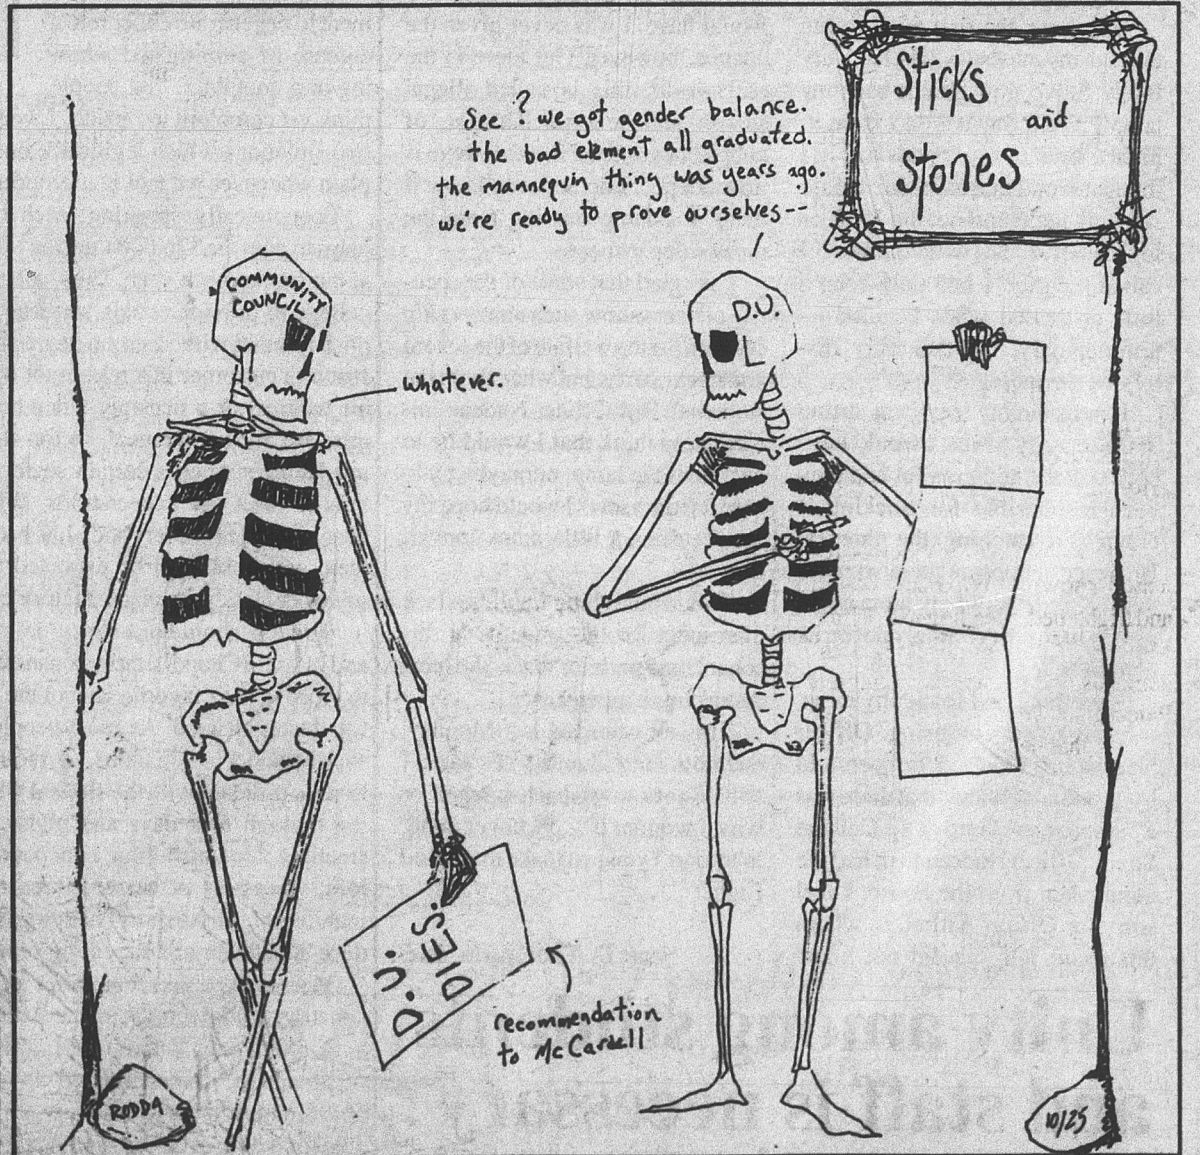 Sticks
and
Stones
See? we got gender balance.
the bad element all graduated.
the mannequin thing was years ago.
we're ready to prove ourselves--
COMMUNITY
COUNCIL
D.U.
whatever.
D.U.
DIES.
recommendation
to McCardell
RODDA
10/25